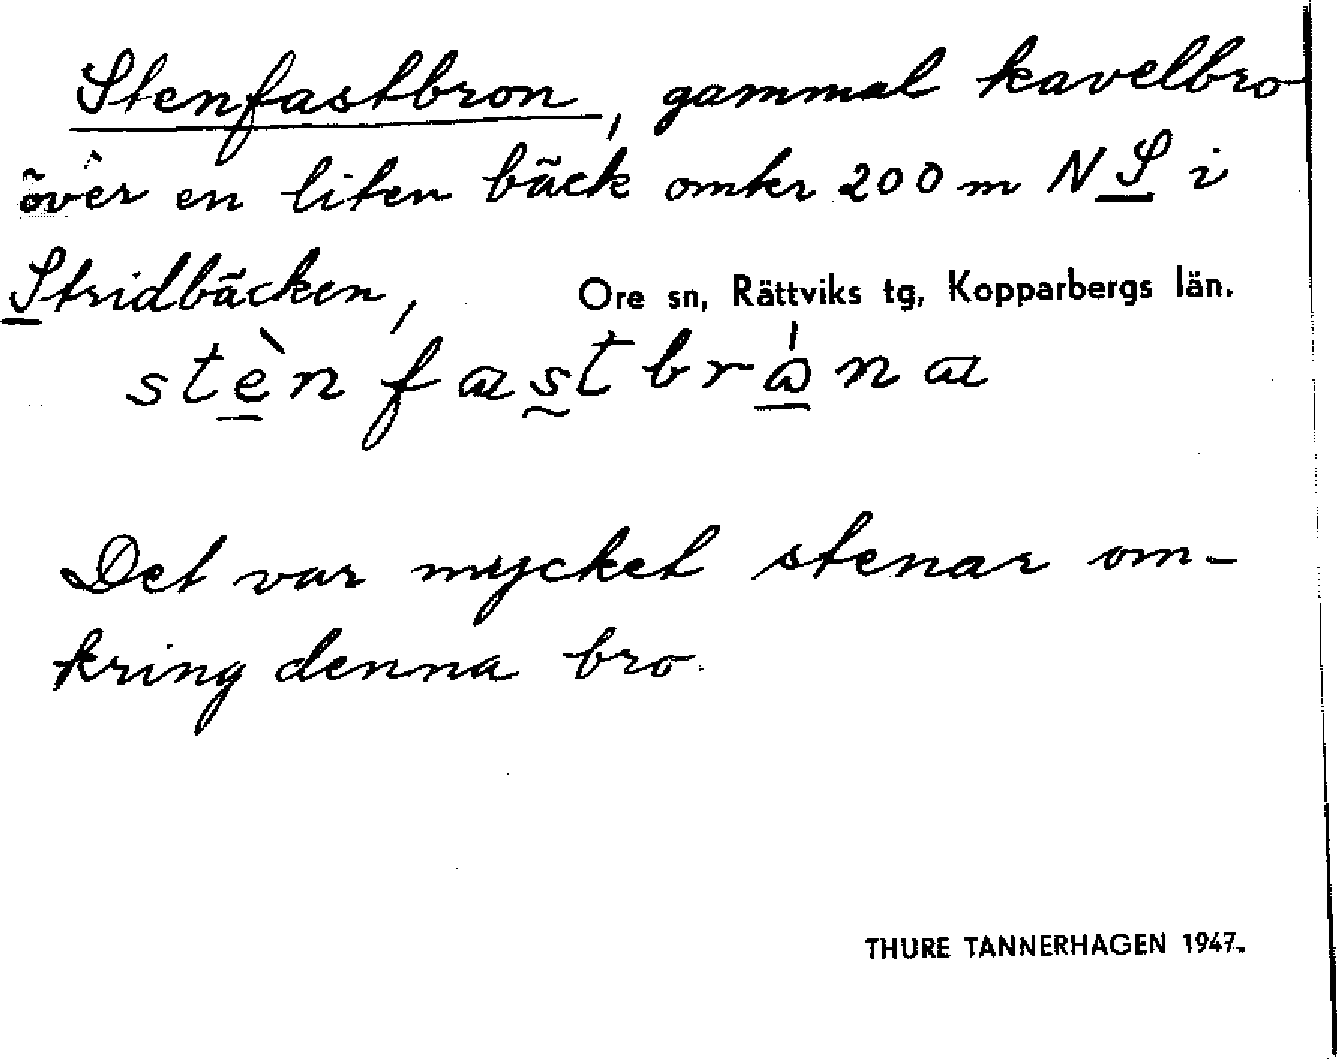 Stenfastbron, gammal kavelbro
över en liten bäck omkr 200 m N S i
Stridbäcken, Ore sn, Rättviks tg, Kopparbergs län.
stènfastbrånα
Det var mycket stenar om-
kring denna bro.
THURE TANNERHAGEN 1947.